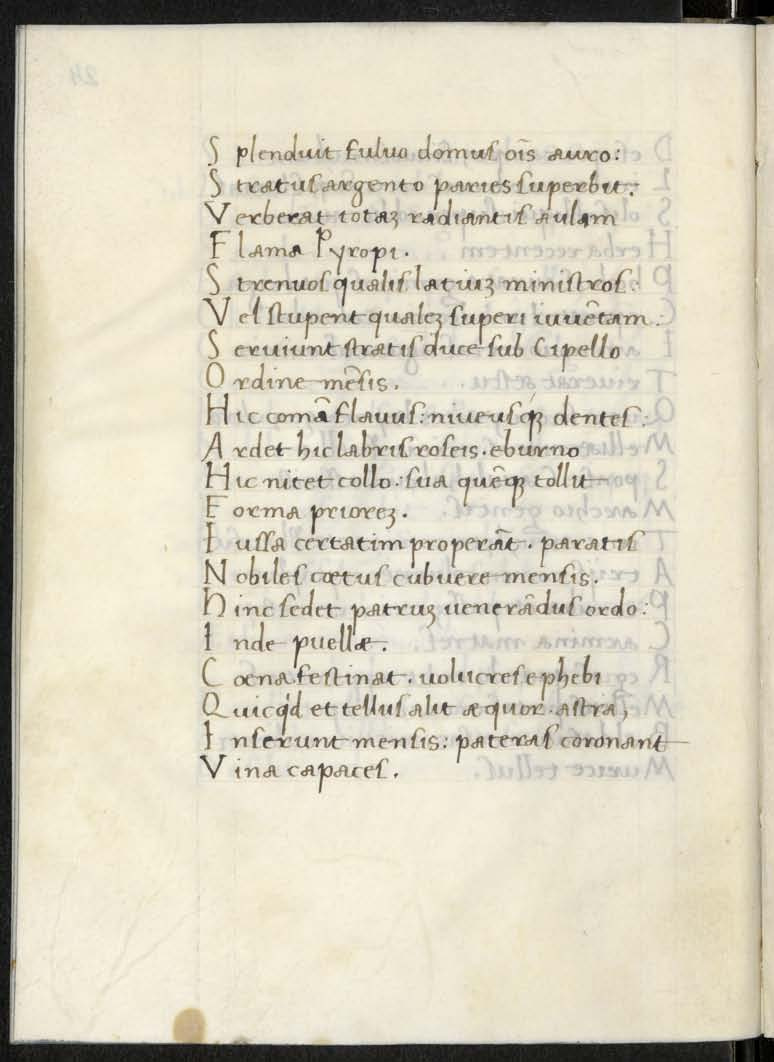 Splenduit fuluo domus oı̄s auro:
Stratus argento paries superbit:
Verberat totaꝫ radiantis aulam
Flama Pyropi.
Strenuos qualis latiuꝫ ministros:
Vel stupent qualeꝫ superi iuuētam:
Seruiunt stratis duce sub Cipello
Ordine mēsis.
Hic comā flauus: niueusqꝫ dentes:
Ardet hic labris roseis. eburno
Hic nitet collo: sua quēqꝫ tollit
Forma prioreꝫ.
Iussa certatim properāt. paratis
Nobiles cœtus cubuere mensis.
Hinc sedet patruꝫ uenerādus ordo:
Inde puellæ.
Cœna festinat. uolucres ephebi
Quicq́d et tellus alit æquor. astra,
Inferunt mensis: pateras coronant
Vina capaces.